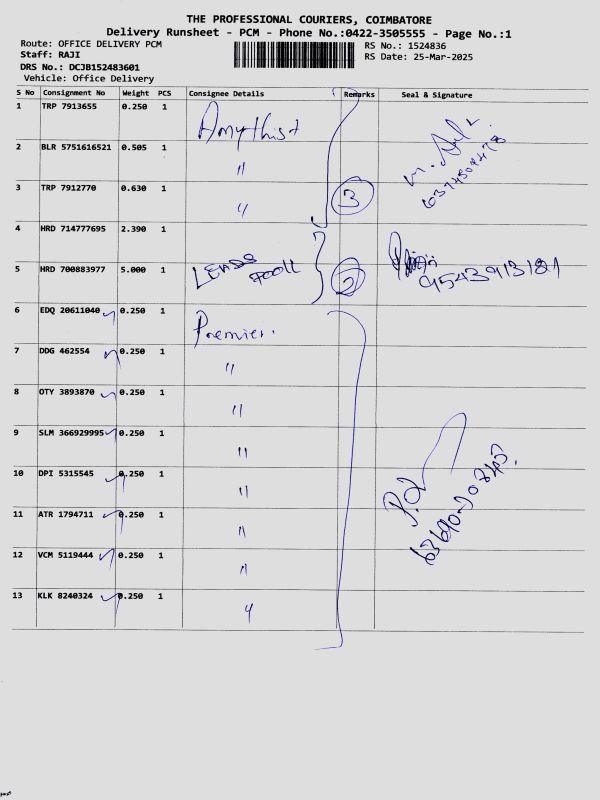 THE PROFESSIONAL COURIERS, COIMBATORE
Delivery Runsheet - PCM - Phone No.:0422-3505555 - Page No.:1
Route: OFFICE DELIVERY PCM
Staff: RAJI
DRS No.: DCJB152483601
Vehicle: Office Delivery
RS No.: 1524836
RS Date: 25-Mar-2025
S No Consignment No Weight PCS Consignee Details Remarks Seal & Signature
1 TRP 7913655 0.250 1 Amythist
2 BLR 5751616521 0.505 1 "
3 TRP 7912770 0.630 1 " 3
4 HRD 714777695 2.390 1
5 HRD 700883977 5.000 1 2 9543913181
6 EDQ 20611040 0.250 1 Premier.
7 DDG 462554 0.250 1 "
8 OTY 3893870 0.250 1 "
9 SLM 366929995 0.250 1 "
10 DPI 5315545 0.250 1 "
11 ATR 1794711 0.250 1 "
12 VCM 5119444 0.250 1 "
13 KLK 8240324 0.250 1 "